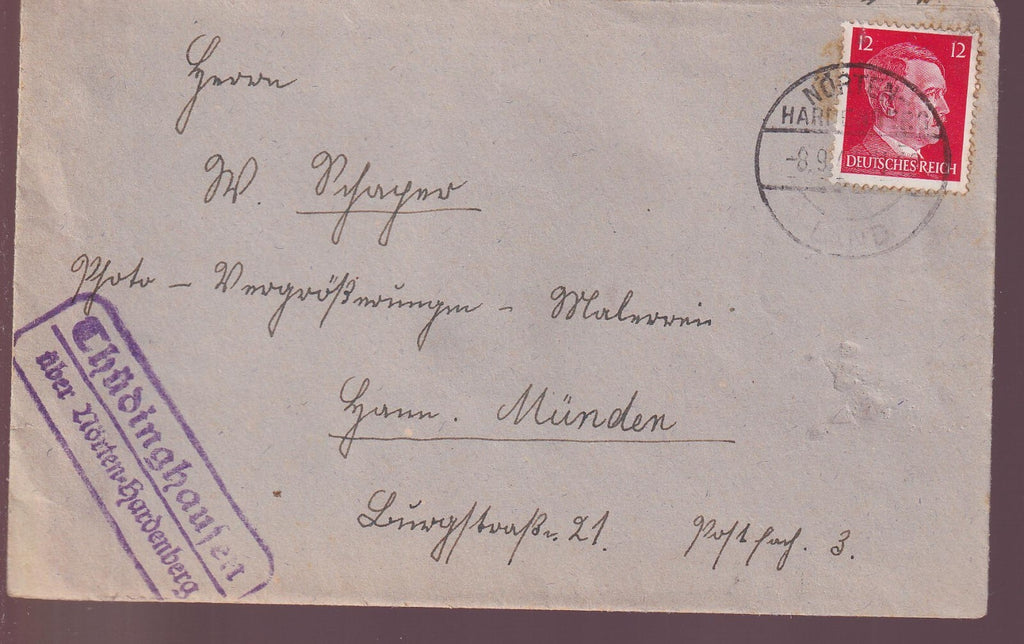 12 12
DEUTSCHES REICH
NÖRTEN-
HARDENBERG
-8.9.
LAND
Herrn
W. Schaper
Photo - Vergrößerungen - Malereien
Hann. Münden
Burgstraße 21. Postfach. 3.
Thüdinghausen
über Nörten-Hardenberg